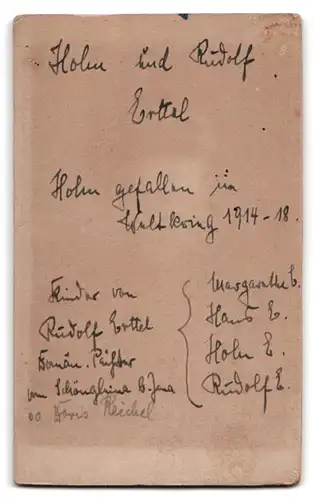 Holm und Rudolf
Erttel
Holm gefallen im
Weltkrieg 1914-18.
Kinder von
Rudolf Erttel
Domän. Pächter
von Schönglina b. Jena
oo Doris Reichel
Margarethe E.
Hans E.
Holm E.
Rudolf E.